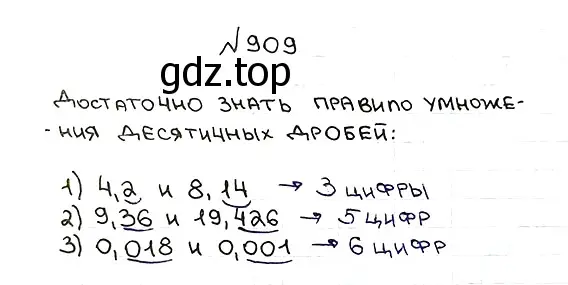 №909
gdz.top
Достаточно знать правило умноже-
-ния десятичных дробей:
1) 4,2 и 8,14 → 3 цифры
2) 9,36 и 19,426 → 5 цифр
3) 0,018 и 0,001 → 6 цифр